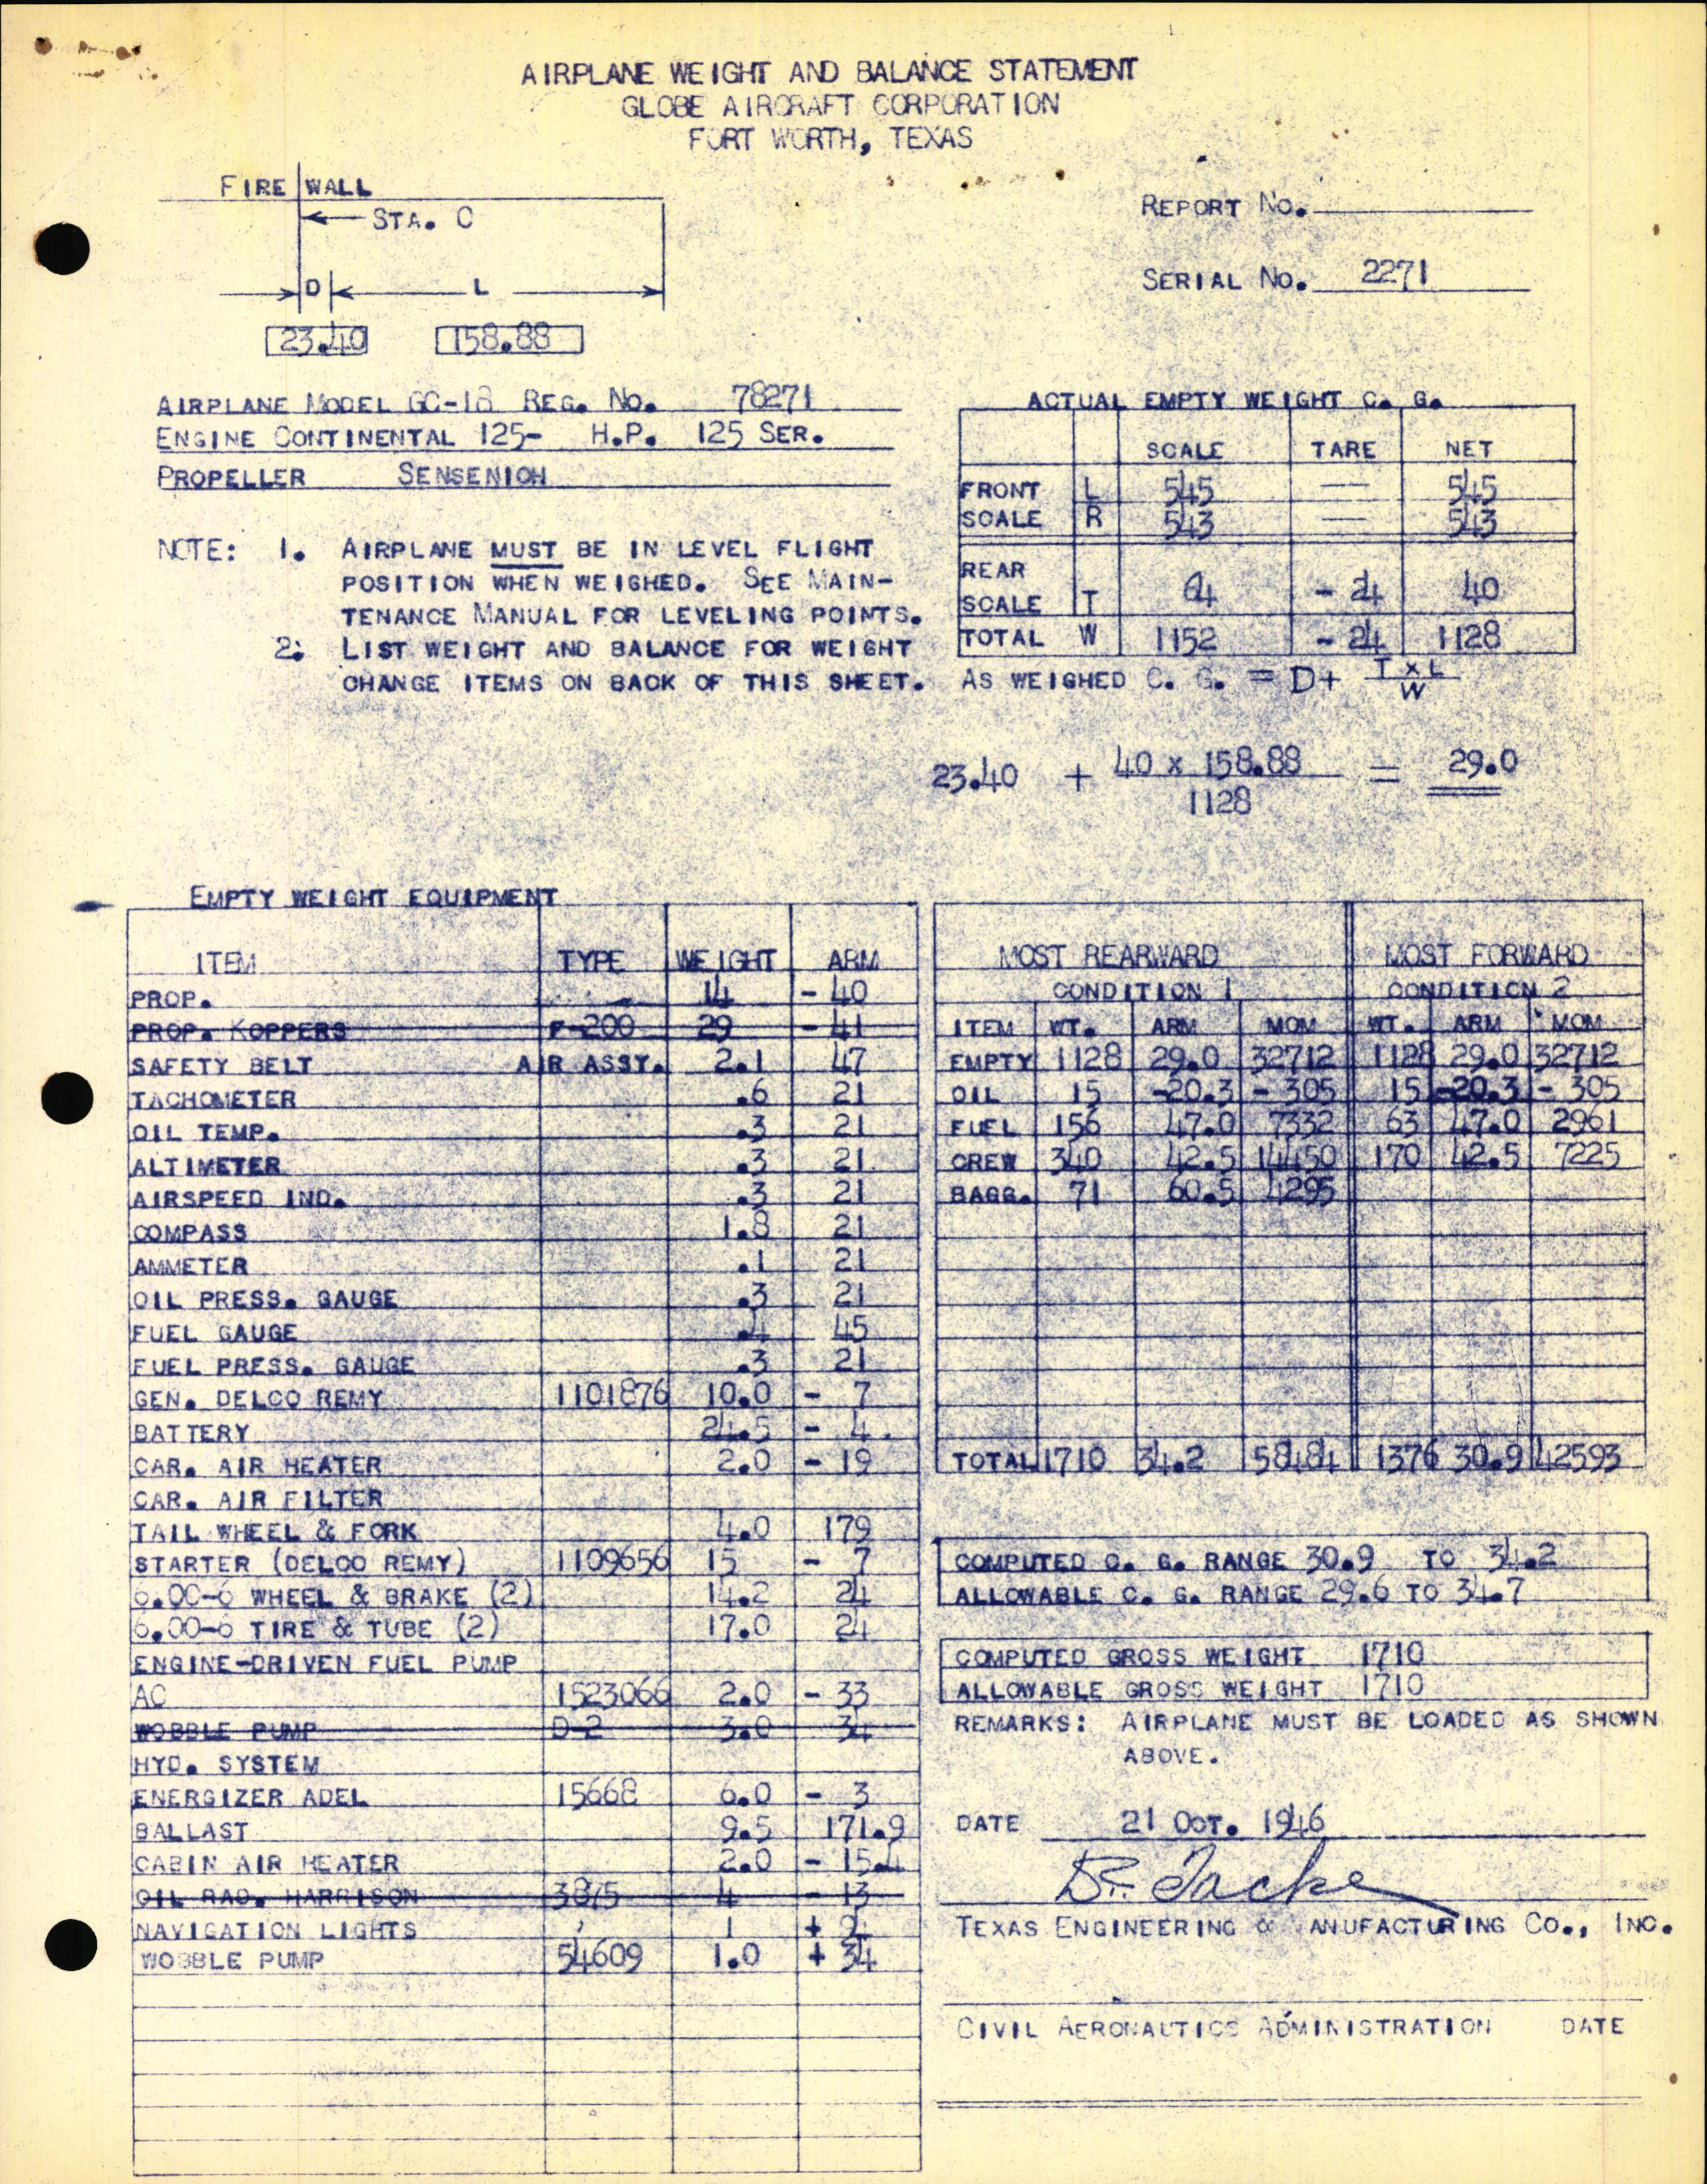 AIRPLANE WEIGHT AND BALANCE STATEMENT
GLOBE AIRCRAFT CORPORATION
FORT WORTH, TEXAS
FIRE WALL
STA. 0
D L
23.40 158.88
REPORT NO.
SERIAL NO. 2271
AIRPLANE MODEL GC-1B REG. NO. 78271
ENGINE CONTINENTAL 125- H.P. 125 SER.
PROPELLER SENSENICH
NOTE: 1. AIRPLANE MUST BE IN LEVEL FLIGHT
POSITION WHEN WEIGHED. SEE MAIN-
TENANCE MANUAL FOR LEVELING POINTS.
2. LIST WEIGHT AND BALANCE FOR WEIGHT
CHANGE ITEMS ON BACK OF THIS SHEET.
ACTUAL EMPTY WEIGHT C. G.
SCALE TARE NET
FRONT L 545 — 545
SCALE R 543 — 543
REAR
SCALE T 64 - 24 40
TOTAL W 1152 - 24 1128
AS WEIGHED C. G. = D+ T x L
W
23.40 + 40 x 158.88 = 29.0
1128
EMPTY WEIGHT EQUIPMENT
ITEM TYPE WEIGHT ARM
PROP. 14 - 40
PROP. KOPPERS F-200 29 - 41
SAFETY BELT AIR ASSY. 2.1 47
TACHOMETER .6 21
OIL TEMP. .3 21
ALTIMETER .3 21
AIRSPEED IND. .3 21
COMPASS 1.8 21
AMMETER .1 21
OIL PRESS. GAUGE .3 21
FUEL GAUGE .4 45
FUEL PRESS. GAUGE .3 21
GEN. DELCO REMY 1101876 10.0 - 7
BATTERY 24.5 - 4
CAR. AIR HEATER 2.0 - 19
CAR. AIR FILTER
TAIL WHEEL & FORK 4.0 179
STARTER (DELCO REMY) 1109656 15 - 7
6.00-6 WHEEL & BRAKE (2) 14.2 24
6.00-6 TIRE & TUBE (2) 17.0 24
ENGINE-DRIVEN FUEL PUMP
AC 1523066 2.0 - 33
WOBBLE PUMP D-2 3.0 34
HYD. SYSTEM
ENERGIZER ADEL 15668 6.0 - 3
BALLAST 9.5 171.9
CABIN AIR HEATER 2.0 - 15.4
OIL RAD. HARRISON 3875 4 - 13
NAVIGATION LIGHTS 1 +
WOBBLE PUMP 54609 1.0 + 34
MOST REARWARD MOST FORWARD
CONDITION 1 CONDITION 2
ITEM WT. ARM MOM WT. ARM MOM
EMPTY 1128 29.0 32712 1128 29.0 32712
OIL 15 -20.3 - 305 15 -20.3 - 305
FUEL 156 47.0 7332 63 47.0 2961
CREW 340 42.5 14450 170 42.5 7225
BAGG. 71 60.5 4295
TOTAL 1710 34.2 58484 1376 30.9 42593
COMPUTED C. G. RANGE 30.9 TO 34.2
ALLOWABLE C. G. RANGE 29.6 TO 34.7
COMPUTED GROSS WEIGHT 1710
ALLOWABLE GROSS WEIGHT 1710
REMARKS: AIRPLANE MUST BE LOADED AS SHOWN
ABOVE.
DATE 21 OCT. 1946
TEXAS ENGINEERING & MANUFACTURING CO., INC.
CIVIL AERONAUTICS ADMINISTRATION DATE